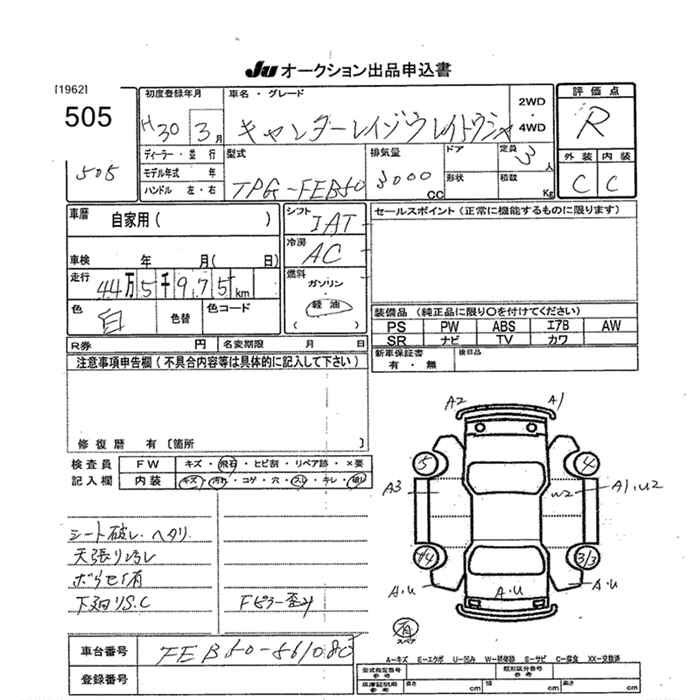 JU オークション出品申込書
[1962]
505
505
初度登録年月
H30 3月
車名・グレード
キャンター
2WD
4WD
評価点
R
外装 内装
C C
ディーラー・並行
モデル年式 年
ハンドル 左・右
型式
TPG-FEB50
排気量
3000 CC
ドア
形状
定員
3人
積載
Kg
車暦
自家用( )
車検 年 月( 日)
走行
44万5千975km
色
白
色替
色コード
シフト
IAT
冷房
AC
燃料
ガソリン
軽油
セールスポイント(正常に機能するものに限ります)
装備品(純正品に限り○を付けてください)
PS PW ABS エアB AW
SR ナビ TV カワ
新車保証書
有・無
後日品
R券 円 名変期限 月 日
注意事項申告欄(不具合内容等は具体的に記入して下さい)
修復暦 有〔箇所 〕
検査員 FW キズ・飛石・ヒビ割・リペア跡・×要
記入欄 内装 キズ・汚れ・コゲ・穴・スレ・キレ・破レ
シート破レ ヘタリ
天張り
下廻りS.C
Fピラー歪ミ
A2 A1
5 4
A3 W2 A1,U2
4 3/3
A・U A・U A・U
有
スペア
車台番号
FEB50-561080
登録番号
A-キズ E-エクボ U-凹み W-補修跡 S-サビ C-腐食 XX-交換済
型式指定番号
参考
類別区分番号
参考
参考
長さ cm 幅 cm 高さ cm